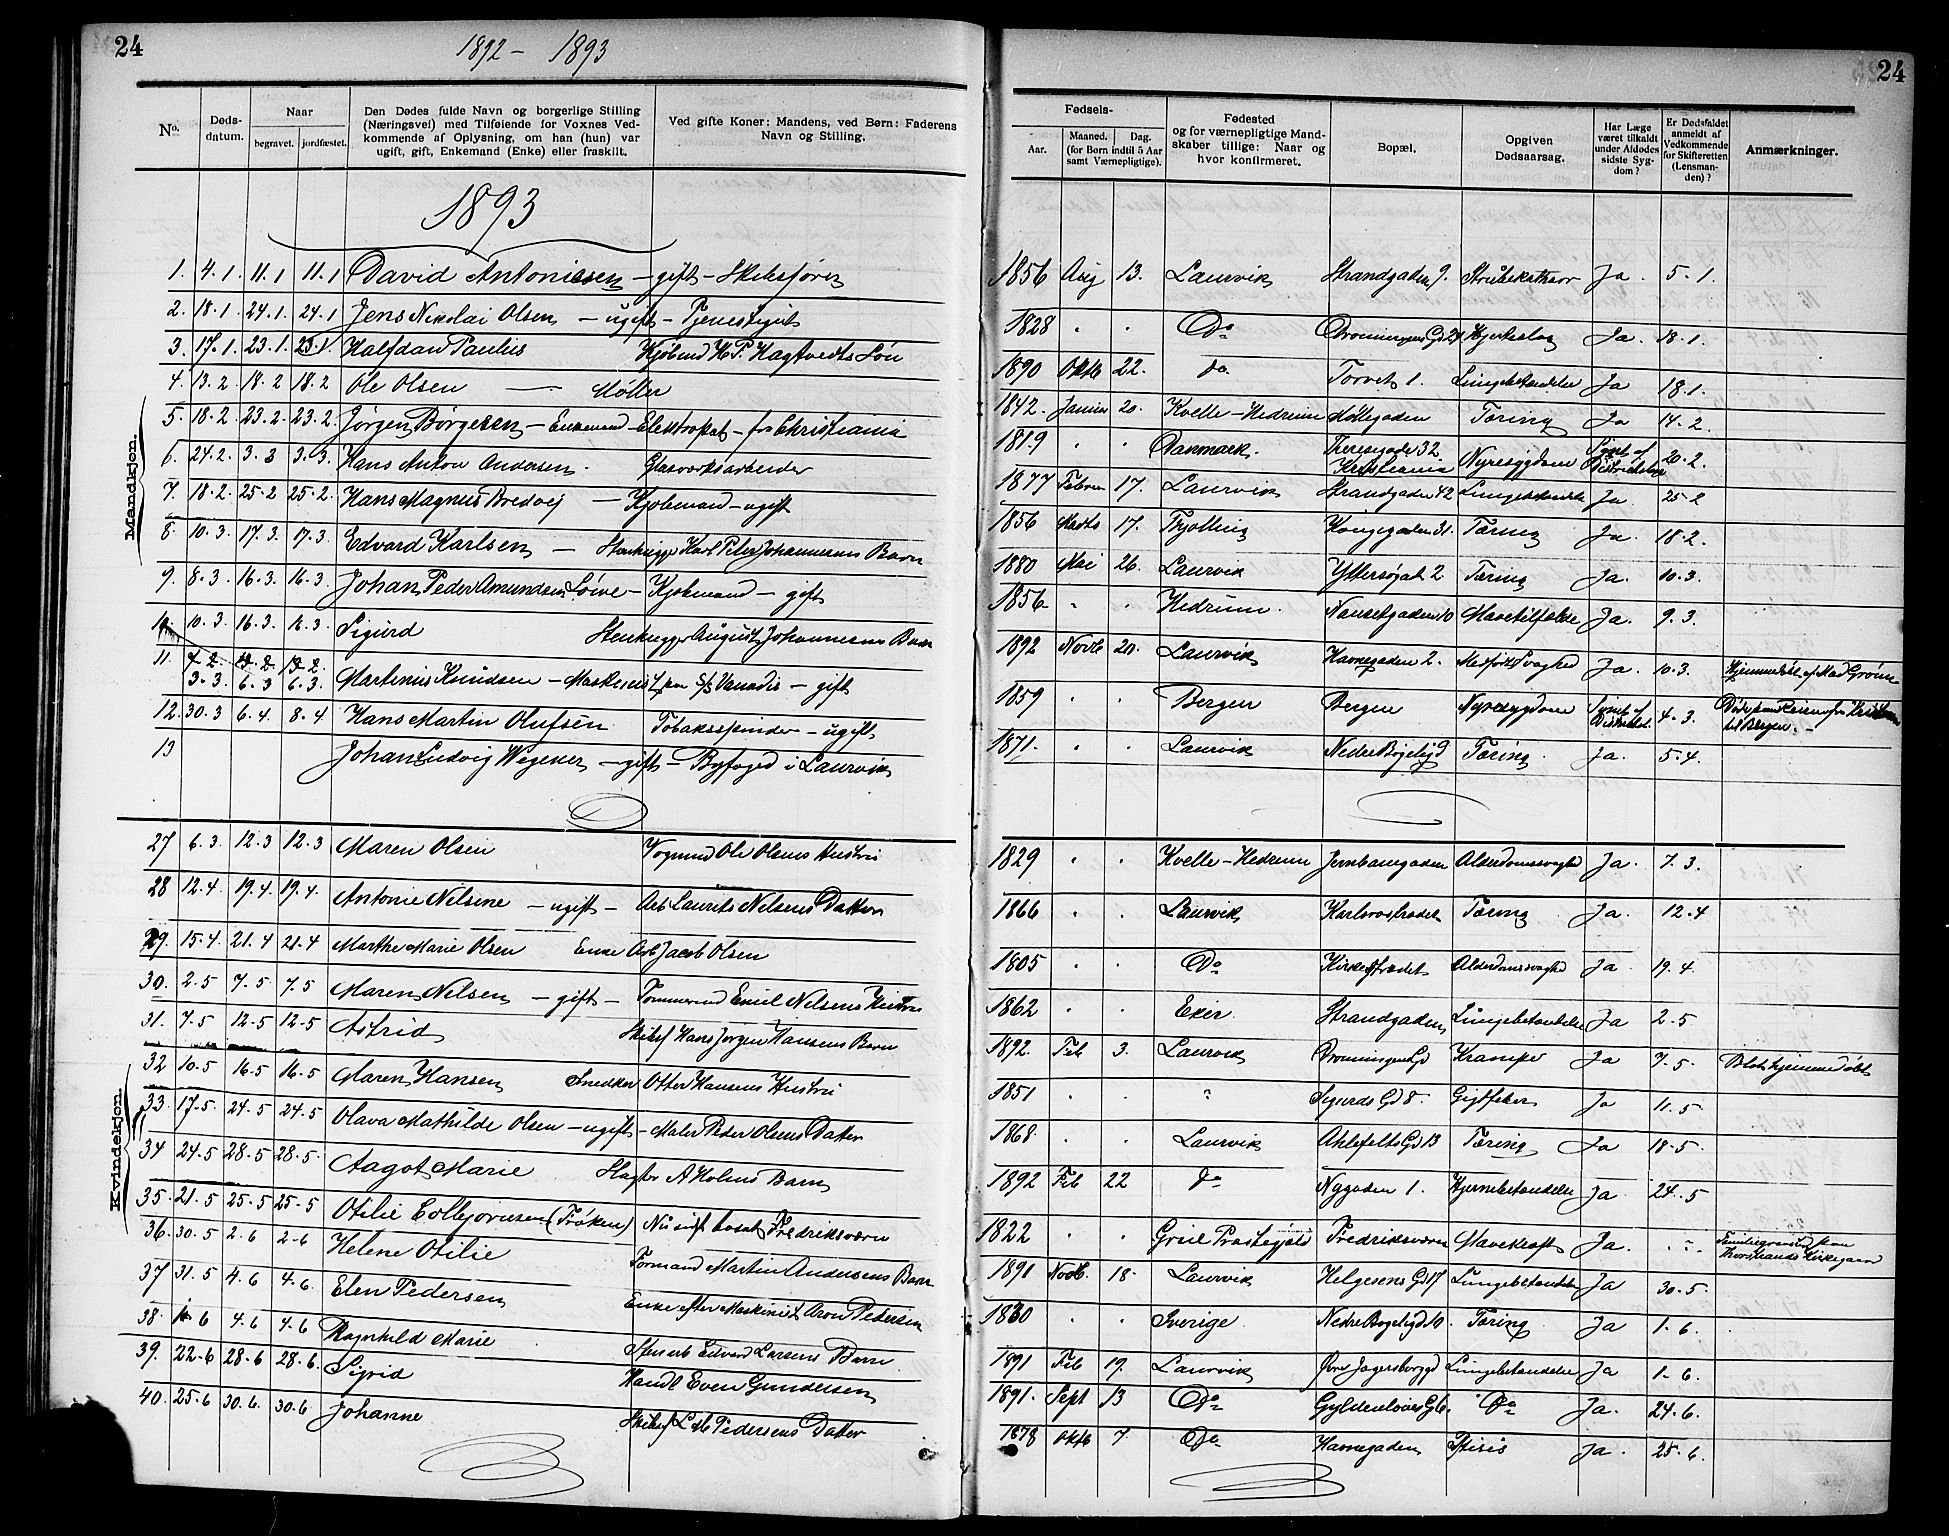 24
1892 - 1893
24
No.
Døds-
datum.
Naar
begravet.
jordfæstet.
Den Dødes fulde Navn og borgerlige Stilling
(Næringsvei) med Tilføiende for Voxnes Ved-
kommende af Oplysning, om han (hun) var
ugift, gift, Enkemand (Enke) eller fraskilt.
Ved gifte Koner: Mandens, ved Børn: Faderens
Navn og Stilling.
Fødsels-
Aar.
Maaned.
Dag.
(for Børn indtil 5 Aar
samt Værnepligtige).
Fødested
og for værnepligtige Mand-
skaber tillige: Naar og
hvor konfirmeret.
Bopæl.
Opgiven
Dødsaarsag.
Har Læge
været tilkaldt
under Afdødes
sidste Syg-
dom?
Er Dødsfaldet
anmeldt af
Vedkommende
for Skifteretten
(Lensman-
den)?
Anmærkninger.
1893
Mandkjøn.
1. 4.1. 11.1 11.1 David Antonissen - gift - Skibsfører 1856 Aug 13. Laurvik Strandgaden 9. Ja 5-1.
2. 18.1 24.1 24.1 Jens Nikolai Olsen - ugift - Tjenestegut 1828 " " Do Ja. 18-1.
3. 17.1. 23.1. 23.1. Halfdan Paulus Kjøbmd H.P. Hagtvedts Søn 1890 Oktb 22. do Torvet 1. Lungebetændelse Ja 18.1.
4. 13.2 18.2 18.2 Ole Olsen - Møller 1842. Januar 20. Kvelle-Hedrum Møllegaden Tæring Ja 14-2.
5. 18.2 23.2. 23.2. Jørgen Børgesen - Enkemand - fra Christiania 1819 " " Danmark. Theresegade 32 Kristiania Nyresygdom Synet af 20-2.
6. 24.2 3.3 3.3. Hans Anton Andersen. Glasværksarbeider 1877 Februar 17. Laurvik Strandgaden 42 Lungebetændelse Ja. 25-2
7. 18.2 25.2 25.2. Hans Magnus Bredvej - Kjøbmand - ugift 1856 Marts 17. Thjølling Kongegaden 31. Tæring Ja. 18-2.
8. 10.3 17.3. 17.3 Edvard Karlsen - Stenhugger Karl Peter Johannesens Barn 1880 Mai 26. Laurvik Yttersøgat 2. Tæring Ja. 10.3.
9. 8.3 16.3. 16.3. Johan Peder Amundsen Løwe - Kjøbmand - gift 1856 " " Hedrum. Nansetgaden 10 Mavetilfælde Ja. 9.3.
10. 10.3 16.3. 16.3 Sigurd Stenhugger August Johannesens Barn 1892 Novb 20. Laurvik Havnegaden 2. Medfødt Svaghed Ja. 10.3. Hjemmedøbt af Mad Grønn
11. 3.3. 6.3 6.3. Martinius Knudsen - Maskinist paa S/S Vanadis - gift 1859 " " Bergen Bergen Nyresygdom Synet af 4-3. til Bergen. -
12. 30.3 6.4. 8.4 Hans Martin Olufsen Tobaksspinder - ugift 1871. " " Laurvik Nedre Bøgeligd Tæring. Ja. 5-4.
13 Johan Ludvig Wegener - gift - Byfoged i Laurvik
Kvindekjøn.
27 6.3 12.3 12.3 Maren Olsen Vognmd Ole Olsens Hustru 1829 " " Kvelle-Hedrum Jernbanegaden Alderdomssvaghed Ja. 7.3.
28 12.4 19.4 19.4. Antonie Nelsine - ugift - Arb Laurits Nelsens Datter 1866 " " Laurvik Karlsrostrædet Tæring Ja. 12-4
29. 15.4. 21.4 21.4 Marthe Marie Olsen Enke Arb Jacob Olsen 1805 " " Do Kirkestrædet Alderdomssvaghed Ja 19.4.
30. 2.5 7.5 7.5 Maren Nelsen - gift - Tømmermd Emil Nelsens Hustru 1862 " " Eker. Strandgaden Lungebetændelse Ja 2-5
31. 7.5 12.5 12.5 Astrid Skibsf Hans Jørgen Hansens Barn 1892. Feb 3. Laurvik Dronningens Gd Krampe Ja 7-5. hjemmedøbt
32 10.5 16.5 16.5 Maren Hansen Snedker Otter Hansens Hustru 1851 " " " Sigurds Gd 8. Gigtfeber Ja 11.5.
33. 17.5. 24.5 24.5 Olava Mathilde Olsen - ugift - Maler Peder Olsens Datter 1868. " " Laurvik Ahlefelts Gd 13 Tæring Ja 18-5.
34 24.5 28.5 28.5. Aagot Marie Slagter A Holms Barn 1892 Feb 22 do Nygaden 1. Hjernebetændelse Ja. 24.5
35. 21.5 25.5 25.5 Otilie (Frøken) Fredriksværn 1822 " " Fredriksværn Mavekræft Ja. " "
36. 30.5 2.6 2.6 Helene Otilie Formand Martin Andersens Barn 1891 Novb. 18. Laurvik Helgesens Gd 17 Lungebetændelse Ja 30.5.
37 31.5 4.6 4.6. Elen Pedersen Enke efter Maskinist Aron Pedersen 1830 " " Sverige. Nedre Bøgeligd 10. Tæring. Ja 1-6.
38. 1.6 4.6 4.6 Ragnhild Marie Stenarb Edvard Larsens Barn 1891 Feb 19. Laurvik Øvre Jegersborggd Lungebetændelse Ja 1-6.
39. 22.6 28.6 28.6. Sigrid Handl Even Gundersen 1891. Sept 13 Do Gyldenløves G 6. Do Ja. 24-6.
40. 25.6 30.6. 30.6 Johanne Skibsf Pedersens Datter 1878 Oktb 7. Do Havnegaden Ja. 25-6.